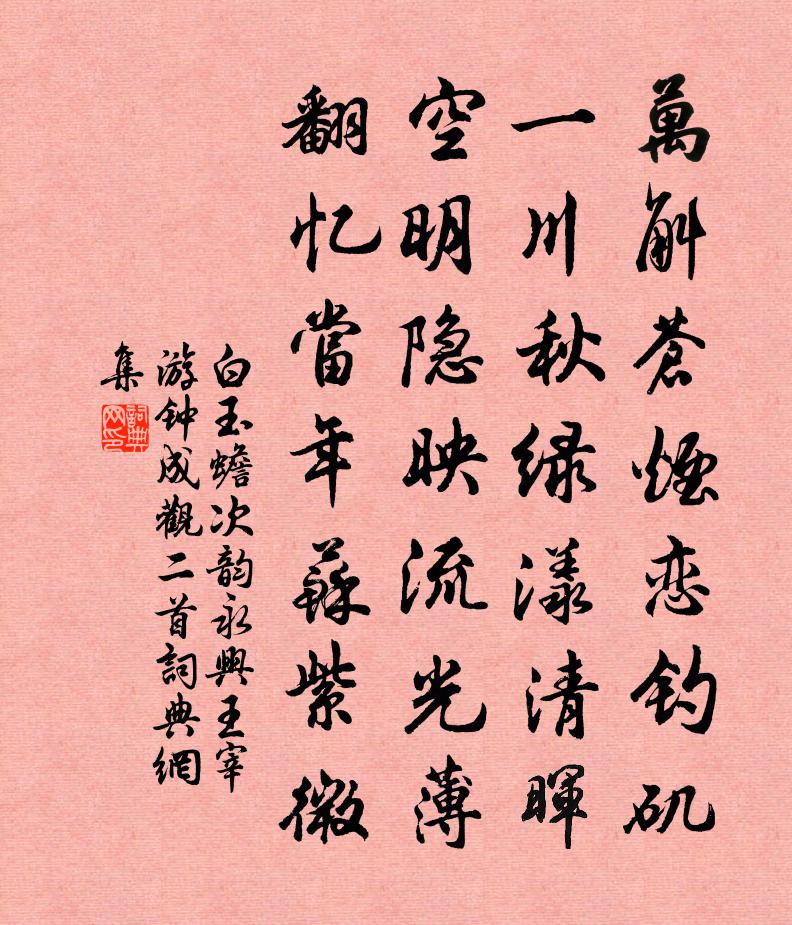 萬斛苍煙恋钓矶
一川秋绿漾清暉
空明隐映流光薄
翻忆當年蘇紫微
白玉蟾次韵永興王宰
游钟成觀二首詞典網
集
詞典网印